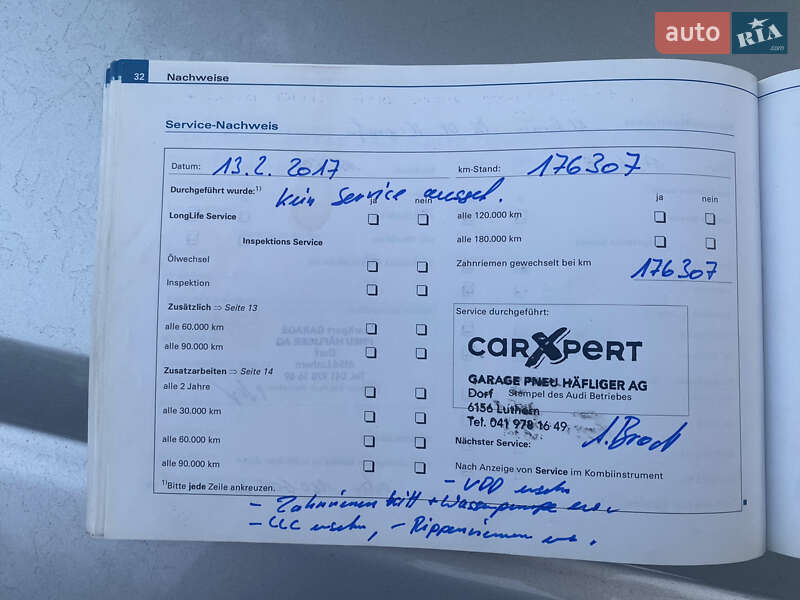 auto RIA .com
32 Nachweise
Service-Nachweis
Datum: 13.2.2017 km-Stand: 176307
Durchgeführt wurde:¹⁾ Kein Service ausgef.
ja nein ja nein
LongLife Service alle 120.000 km
Inspektions Service alle 180.000 km
Ölwechsel Zahnriemen gewechselt bei km 176307
Inspektion
Zusätzlich ⇒ Seite 13
alle 60.000 km
alle 90.000 km
Zusatzarbeiten ⇒ Seite 14
alle 2 Jahre
alle 30.000 km
alle 60.000 km
alle 90.000 km
¹⁾Bitte jede Zeile ankreuzen.
Service durchgeführt:
carXpert
GARAGE PNEU HÄFLIGER AG
Dorf Stempel des Audi Betriebes
6156 Luthern
Tel. 041 978 16 49
Nächster Service:
Nach Anzeige von Service im Kombiinstrument
- VDD
- Zahnriemen + Wasserpumpe
- , - Rippenriemen